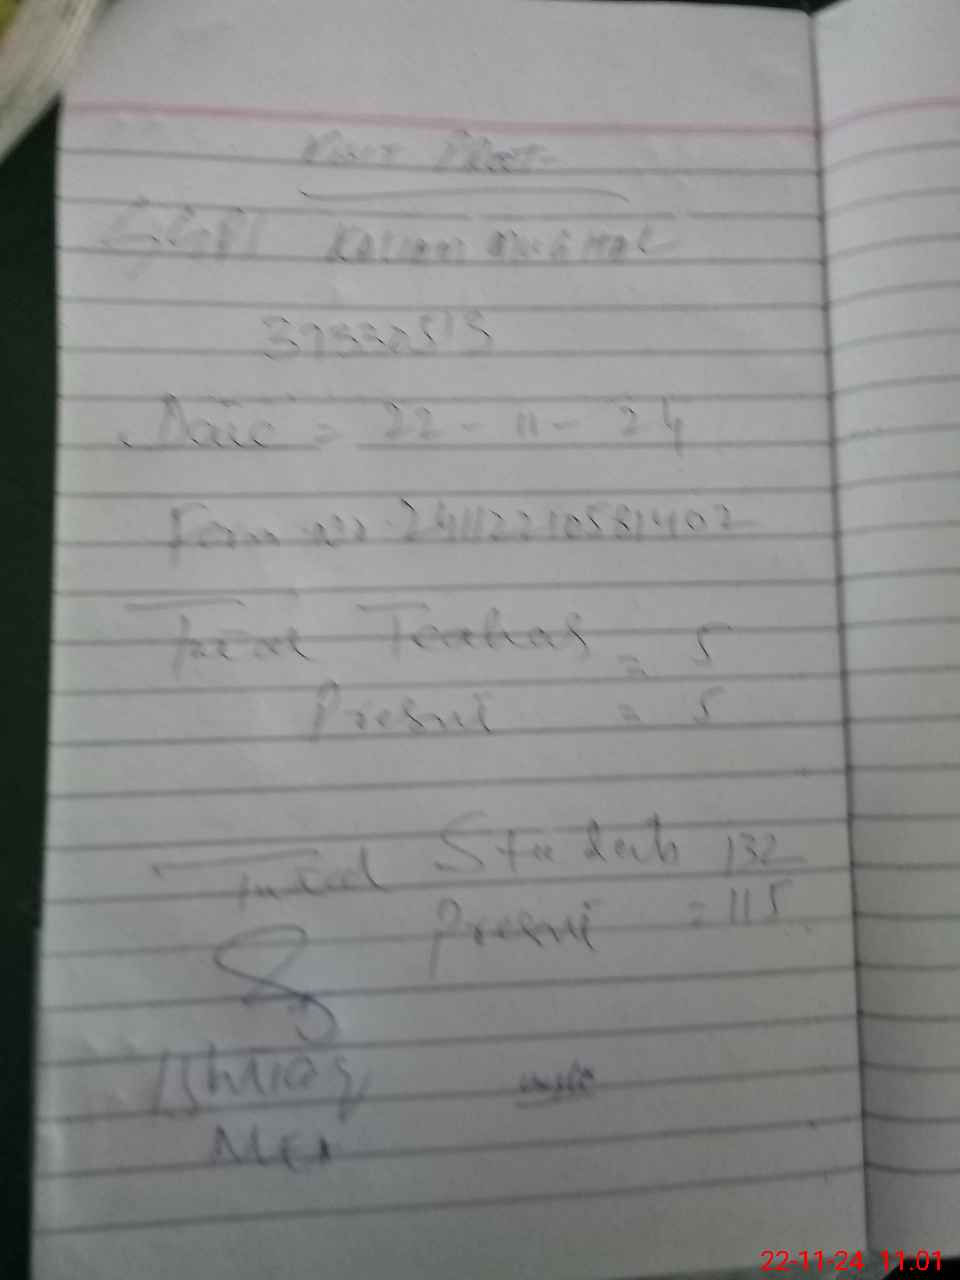 GGPS Kalian
39330515
Date = 22-11-24
Form no. 24112210581402
Total Teachers = 5
Present = 5
Total Students 132
Present = 115
Ishtiaq
MEA
22-11-24 11:01